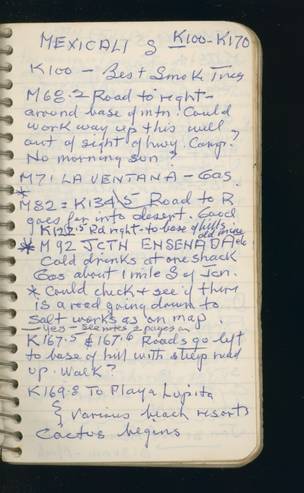 MEXICALI S K100-K170
K100 - Best Smok Trees
M68.2 Road to right -
around base of mtn. Could
work way up this well
out of sight of hwy. Camp?
No morning sun?
M71 LA VENTANA - Gas
* M82 = K134.5 Road to R
goes far into desert. Good
K122.5 Rd right - to base of hills old mine
* M92 JCTN ENSENADA etc
Cold drinks at one shack
Gas about 1 mile S of Jcn.
* Could check & see if there
is a road going down to
salt works as on map.
- yes - see notes 2 pages on
K167.5 & 167.6 Roads go left
to base of hill with steep road
up. Walk?
K169.8 To Playa Lupita
& various beach resorts
Cactus begins